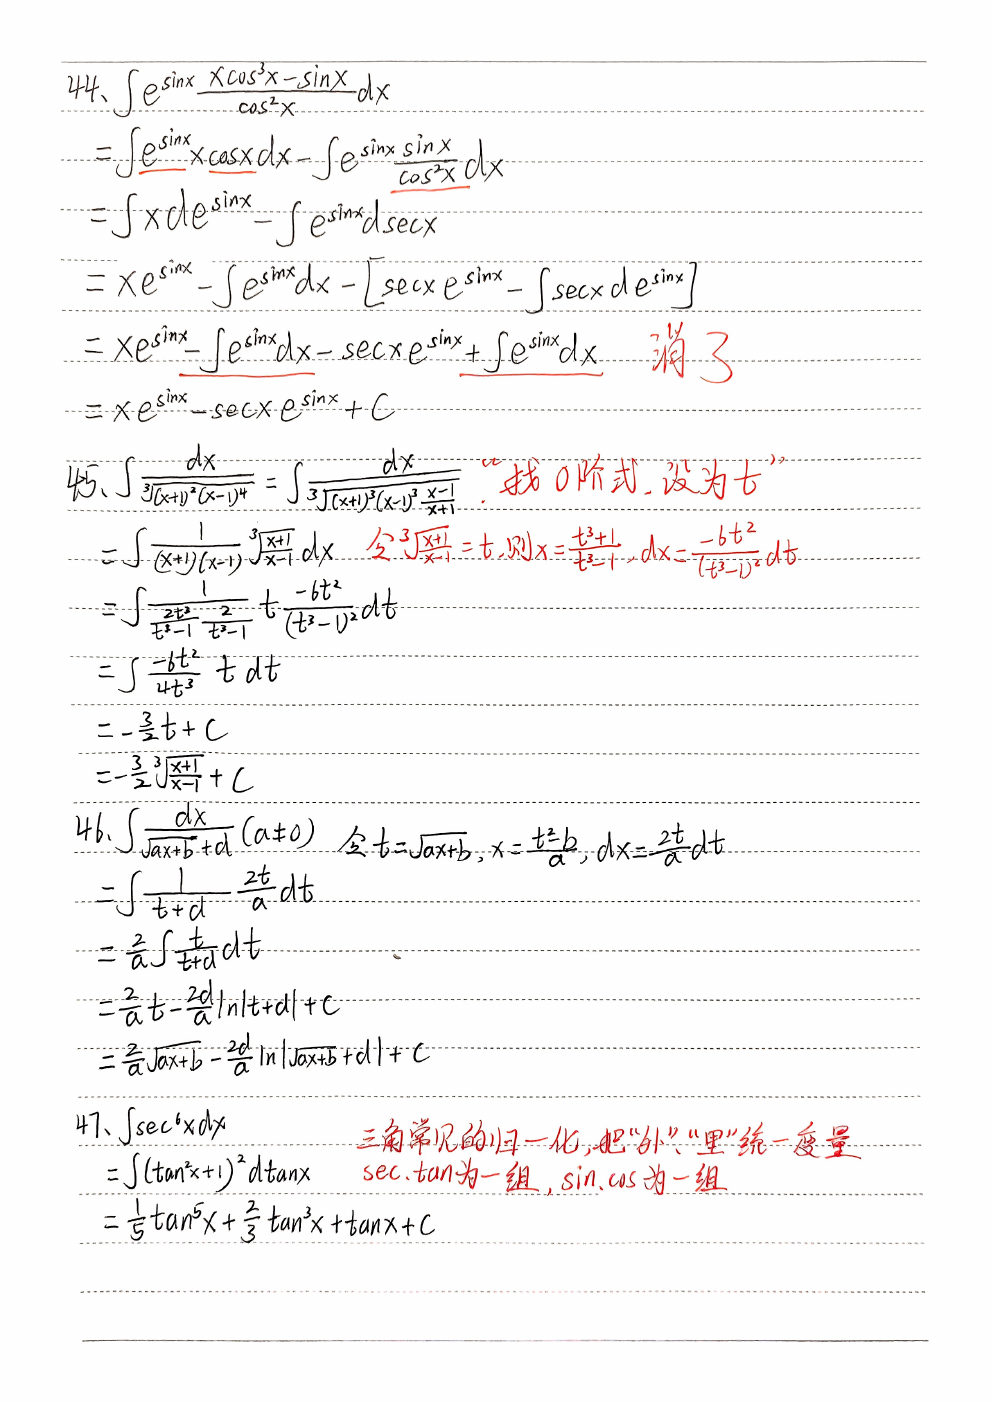 44、∫e^{sinx} (xcos³x−sinx)/(cos²x) dx
=∫e^{sinx}xcosxdx−∫e^{sinx} (sinx)/(cos²x) dx
=∫xde^{sinx}−∫e^{sinx}dsecx
=xe^{sinx}−∫e^{sinx}dx−[secxe^{sinx}−∫secxde^{sinx}]
=xe^{sinx}−∫e^{sinx}dx−secxe^{sinx}+∫e^{sinx}dx 消了
=xe^{sinx}−secxe^{sinx}+C
45、∫dx/∛((x+1)²(x−1)⁴)=∫dx/∛((x+1)³(x−1)³ (x−1)/(x+1)) . “找0阶式、设为t”
=∫1/((x+1)(x−1)) ∛((x+1)/(x−1)) dx 令∛((x+1)/(x−1))=t,则x=(t³+1)/(t³−1), dx=(−6t²)/(t³−1)² dt
=∫1/((2t³)/(t³−1) 2/(t³−1)) t (−6t²)/(t³−1)² dt
=∫(−6t²)/(4t³) t dt
=−3/2 t+C
=−3/2 ∛((x+1)/(x−1))+C
46、∫dx/(√(ax+b)+d) (a≠0) 令t=√(ax+b), x=(t²−b)/a, dx=2t/a dt
=∫1/(t+d) 2t/a dt
=2/a∫t/(t+d) dt
=2/a t−2d/a ln|t+d|+C
=2/a √(ax+b)−2d/a ln|√(ax+b)+d|+C
47、∫sec⁶xdx
三角常见的归一化,把“外”、“里”统一度量
=∫(tan²x+1)²dtanx sec.tan为一组, sin.cos为一组
=1/5 tan⁵x+2/3 tan³x+tanx+C